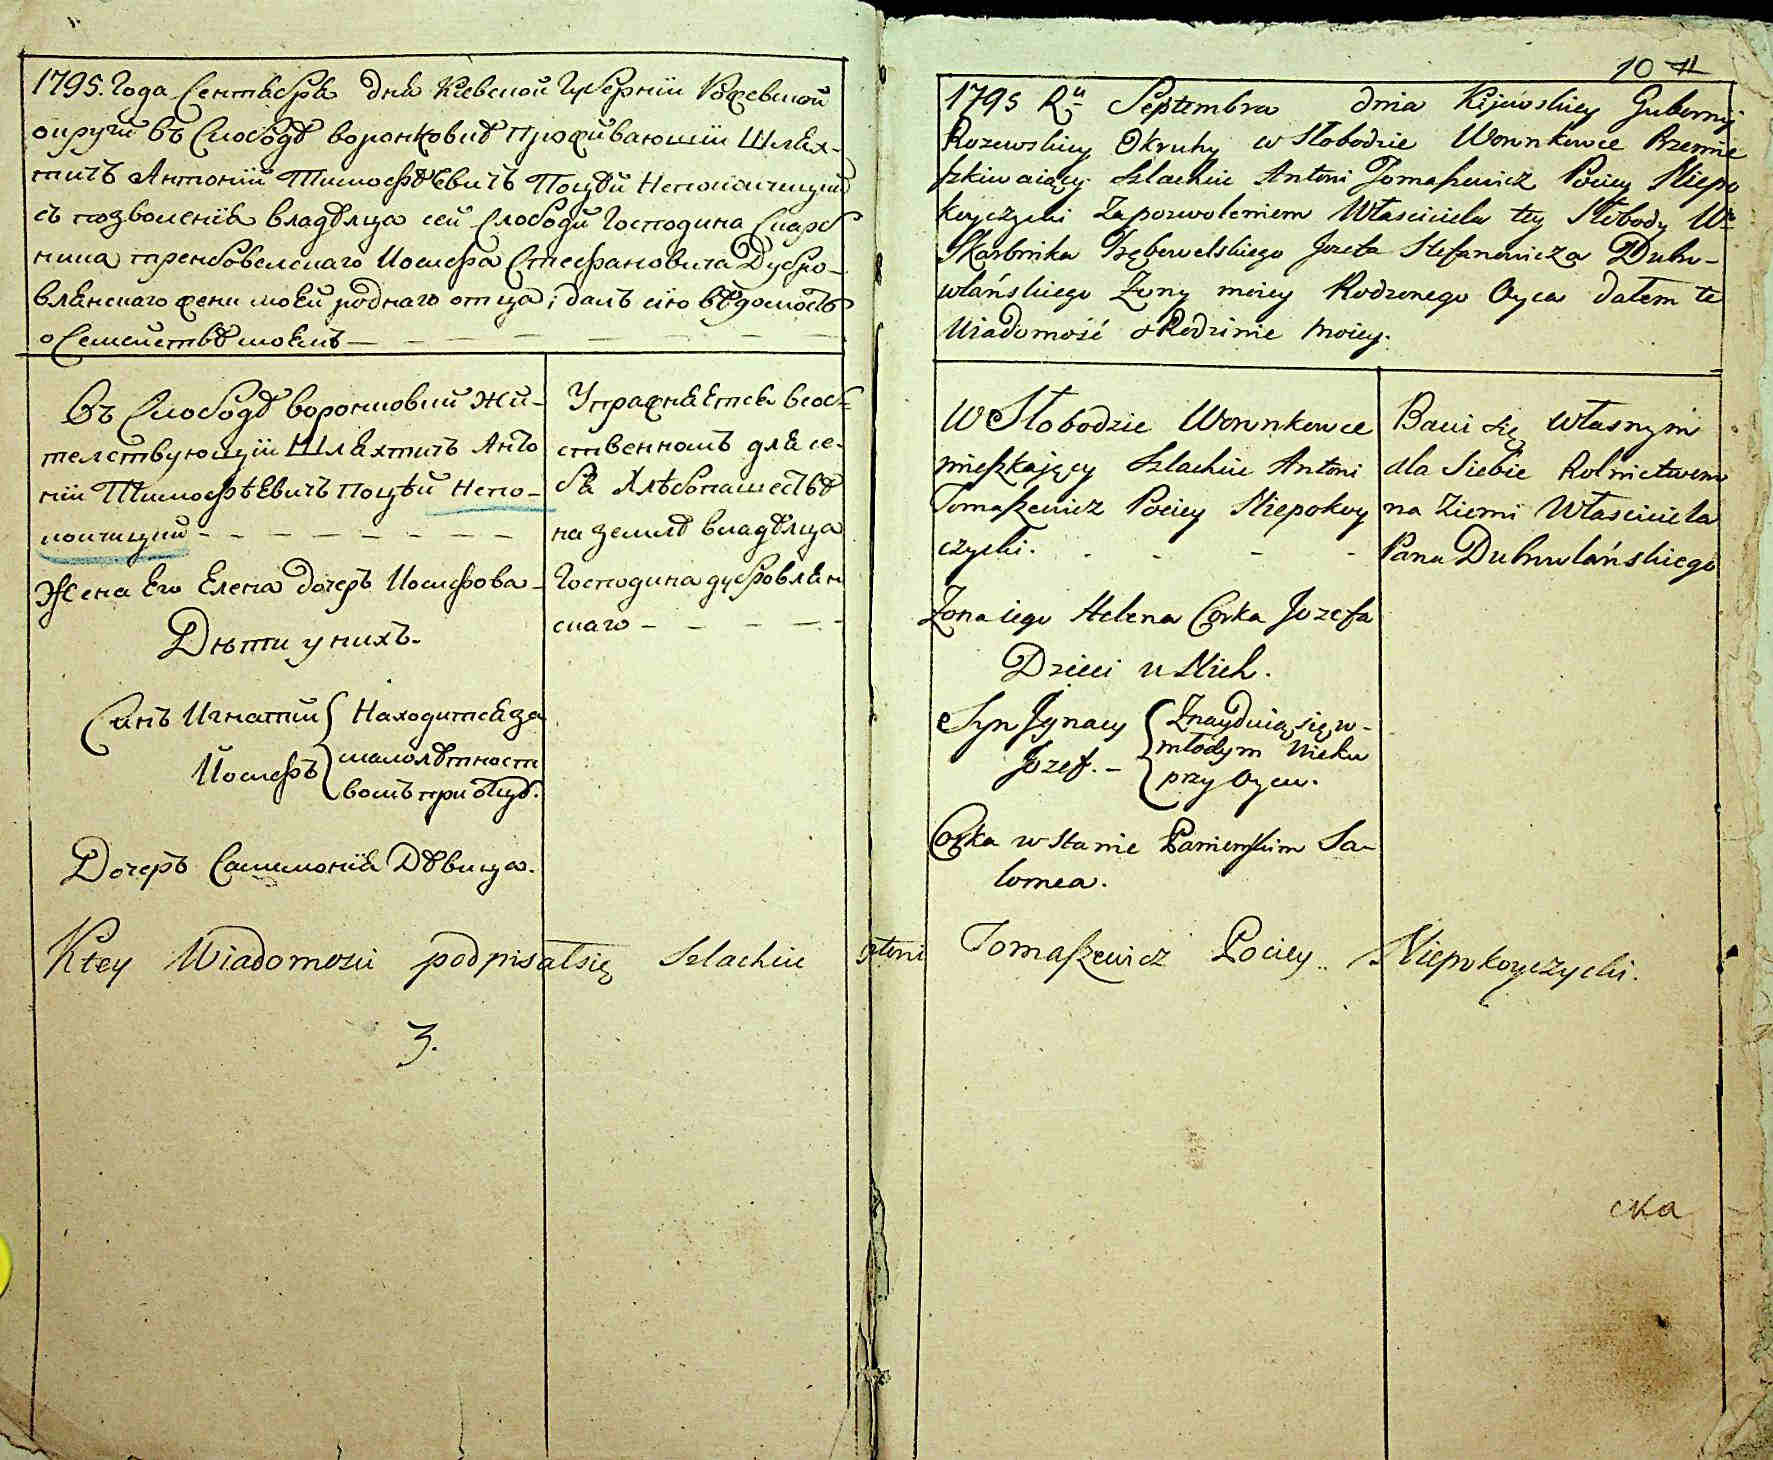 1795. Года Сентября дня Киевской Губернии Рожевской
округи въ Слободѣ воронковке проживающiи Шлях-
тичъ Антонiй Тимофѣевичъ Поцѣй Непокойчицкiй
съ позволенiя владѣлца сей Слободы Господина Скарб
ника трембовелскаго Иосифа Стефановича Дубро-
влянскаго жены моей роднаго отца, далъ сiю вѣдомость
о Семействѣ моемъ
Въ Слободѣ воронковки жи-
телствующiй Шляхтичъ Анто
нiй Тимофѣевичъ поцѣй Непо-
койчицкiй
Жена Его Елена дочеръ Иосифова
Дѣти у нихъ.
Синъ Игнатiй Находятся за
Иосифъ малолѣтност
вомъ при отцѣ.
Дочеръ Саломонiя Дѣвица.
Упражняется в соб-
ственномъ для се-
бя хлѣбопашествѣ
на землѣ владѣлца
Господина дубровлян
скаго
10
1795 Rᵘ Septembra dnia Kijowskiey Gubernij
Rozewskiey Okruhy w Słobodzie Woronkowce Przemie
szkiwaiący Szlachcic Antoni Tomaszewicz Pociey Niepo
koyczycki Zapozwoleniem Własciciela tey Słobody
Skarbnika Trębowelskiego Jozefa Stefanowicza Dubro-
wlańskiego Zony moiey Rodzonego Oyca dałem te
Wiadomość o Rodzinie moiey.
W Słobodzie Woronkowce
mieszkający Szlachcic Antoni
Tomaszewicz Pociey Niepokoy
czycki.
Zona iego Helena Corka Jozefa
Dzieci u Nich.
Syn Jgnacy Znayduią się w
Jozef. młodym Wieku
przy Oycu.
Corka w Stanie Panienskim Sa-
lomea.
Bawi się własnym
dla Siebie Rolnictwem
na Ziemi Własciciela
Pana Dubrowlańskiego
K tey Wiadomosci podpisał się Szlachcic Antoni Tomaszewicz Pociey Niepokoyczycki.
3.
ска